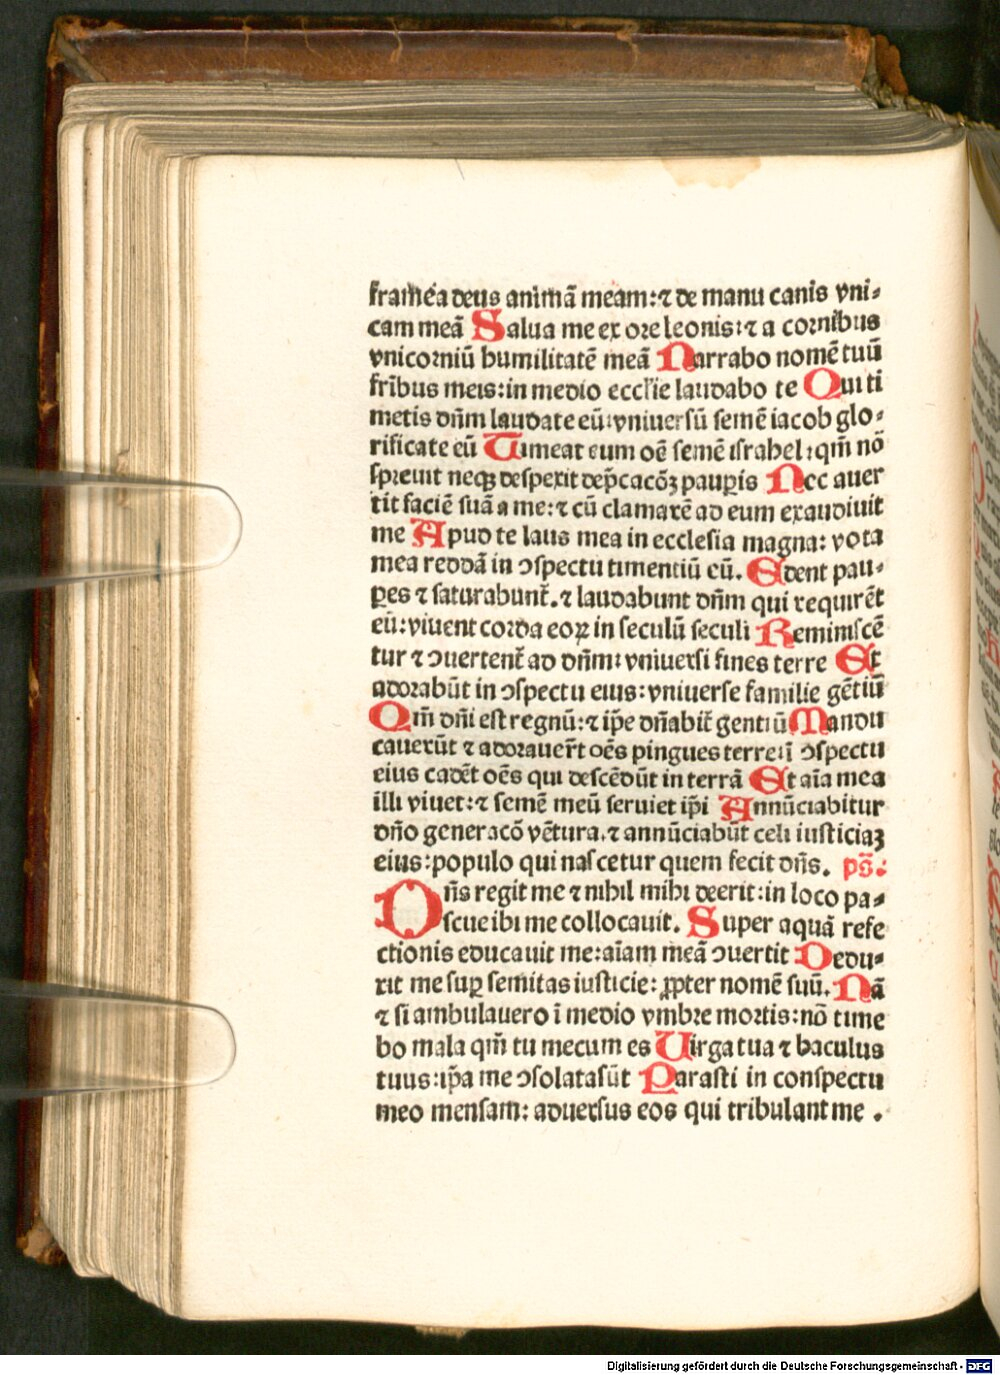 framea deus animā meam: ⁊ de manu canis vni⸗
cam meā Salua me ex ore leonis: ⁊ a cornibus
vnicorniū humilitatē meā Narrabo nomē tuū
fr̄ibus meis: in medio eccl̄ie laudabo te Qui ti
metis dn̄m laudate eū: vniuersū semē iacob glo⸗
rificate eū Timeat eum oē semē israhel: qm̄ nō
spreuit neqꝫ despexit dep̄cacōꝫ paup̲is Nec auer
tit faciē suā a me: ⁊ cū clamarē ad eum exaudiuit
me Apud te laus mea in ecclesia magna: vota
mea reddā in ↄspectu timentiū eū. Edent pau⸗
ꝑes ⁊ saturabunt᷑. ⁊ laudabunt dn̄m qui requirēt
eū: viuent corda eoꝝ in seculū seculi Reminiscē
tur ⁊ ↄuertent᷑ ad dn̄m: vniuersi fines terre Et
adorabūt in ↄspectu eius: vniuerse familie gētiū
Qm̄ dn̄i est regnū: ⁊ ip̄e dn̄abit᷑ gentiū Mandu
cauerūt ⁊ adorauer̄t oēs pingues terre: ī ↄspectu
eius cadēt oēs qui descēdūt in terrā Et aīa mea
illi viuet: ⁊ semē meū seruiet ip̄i Annūciabitur
dn̄o generacō vētura. ⁊ annūciabūt celi iusticiaꝫ
eius: populo qui nascetur quem fecit dn̄s. ps̄:
Dn̄s regit me ⁊ nihil mihi deerit: in loco pa⸗
scue ibi me collocauit. Super aquā refe
ctionis educauit me: aīam meā ↄuertit Dedu⸗
xit me suꝑ semitas iusticie: ꝓpter nomē suū. Nā
⁊ si ambulauero ī medio vmbre mortis: nō time
bo mala qm̄ tu mecum es Uirga tua ⁊ baculus
tuus: ip̄a me ↄsolata sūt Parasti in conspectu
meo mensam: aduersus eos qui tribulant me .
Digitalisierung gefördert durch die Deutsche Forschungsgemeinschaft - DFG